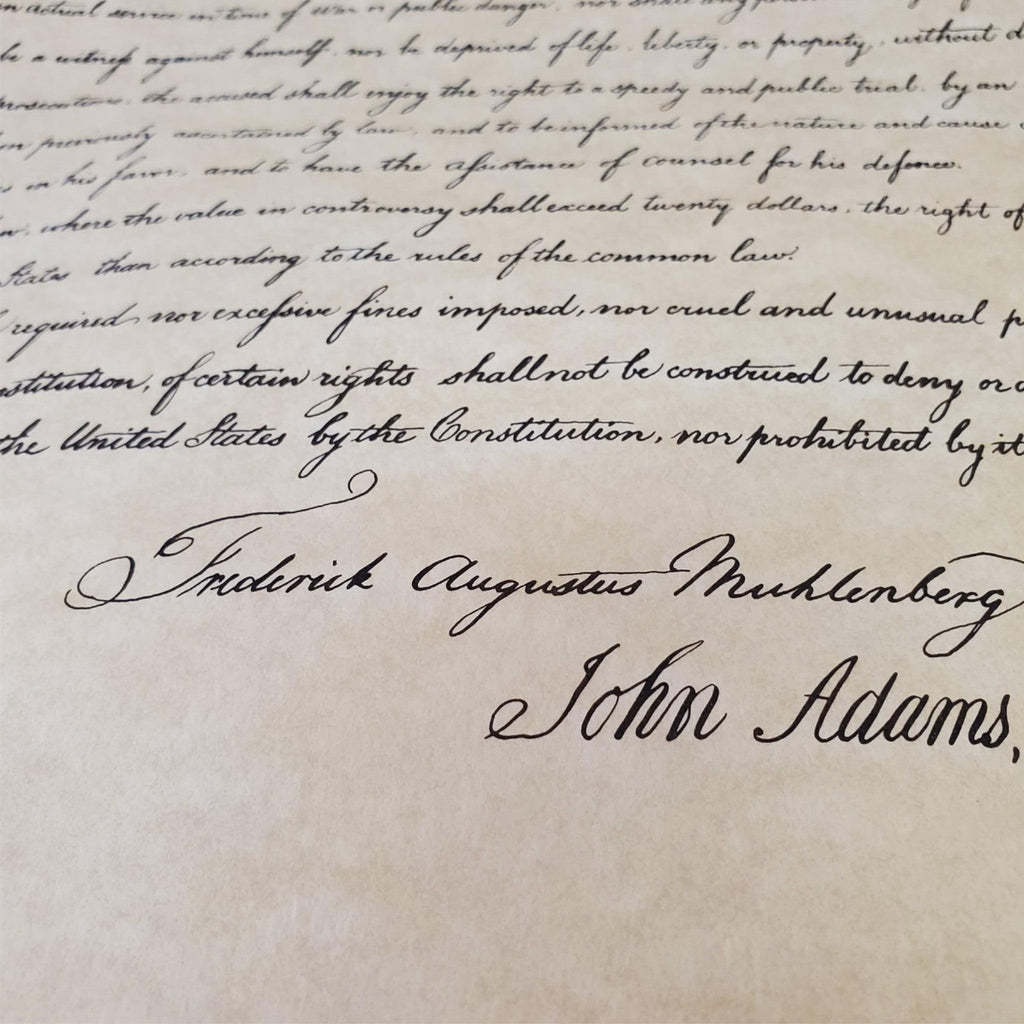 in actual service in time of war or public danger, nor shall any
be a witness against himself, nor be deprived of life, liberty, or property, without d
prosecutions, the accused shall enjoy the right to a speedy and public trial, by an
previously ascertained by law, and to be informed of the nature and cause
in his favor, and to have the assistance of counsel for his defence.
where the value in controversy shall exceed twenty dollars, the right of
States than according to the rules of the common law.
required nor excessive fines imposed, nor cruel and unusual p
nstitution, of certain rights shall not be construed to deny or d
the United States by the Constitution, nor prohibited by it
Frederick Augustus Muhlenberg
John Adams,